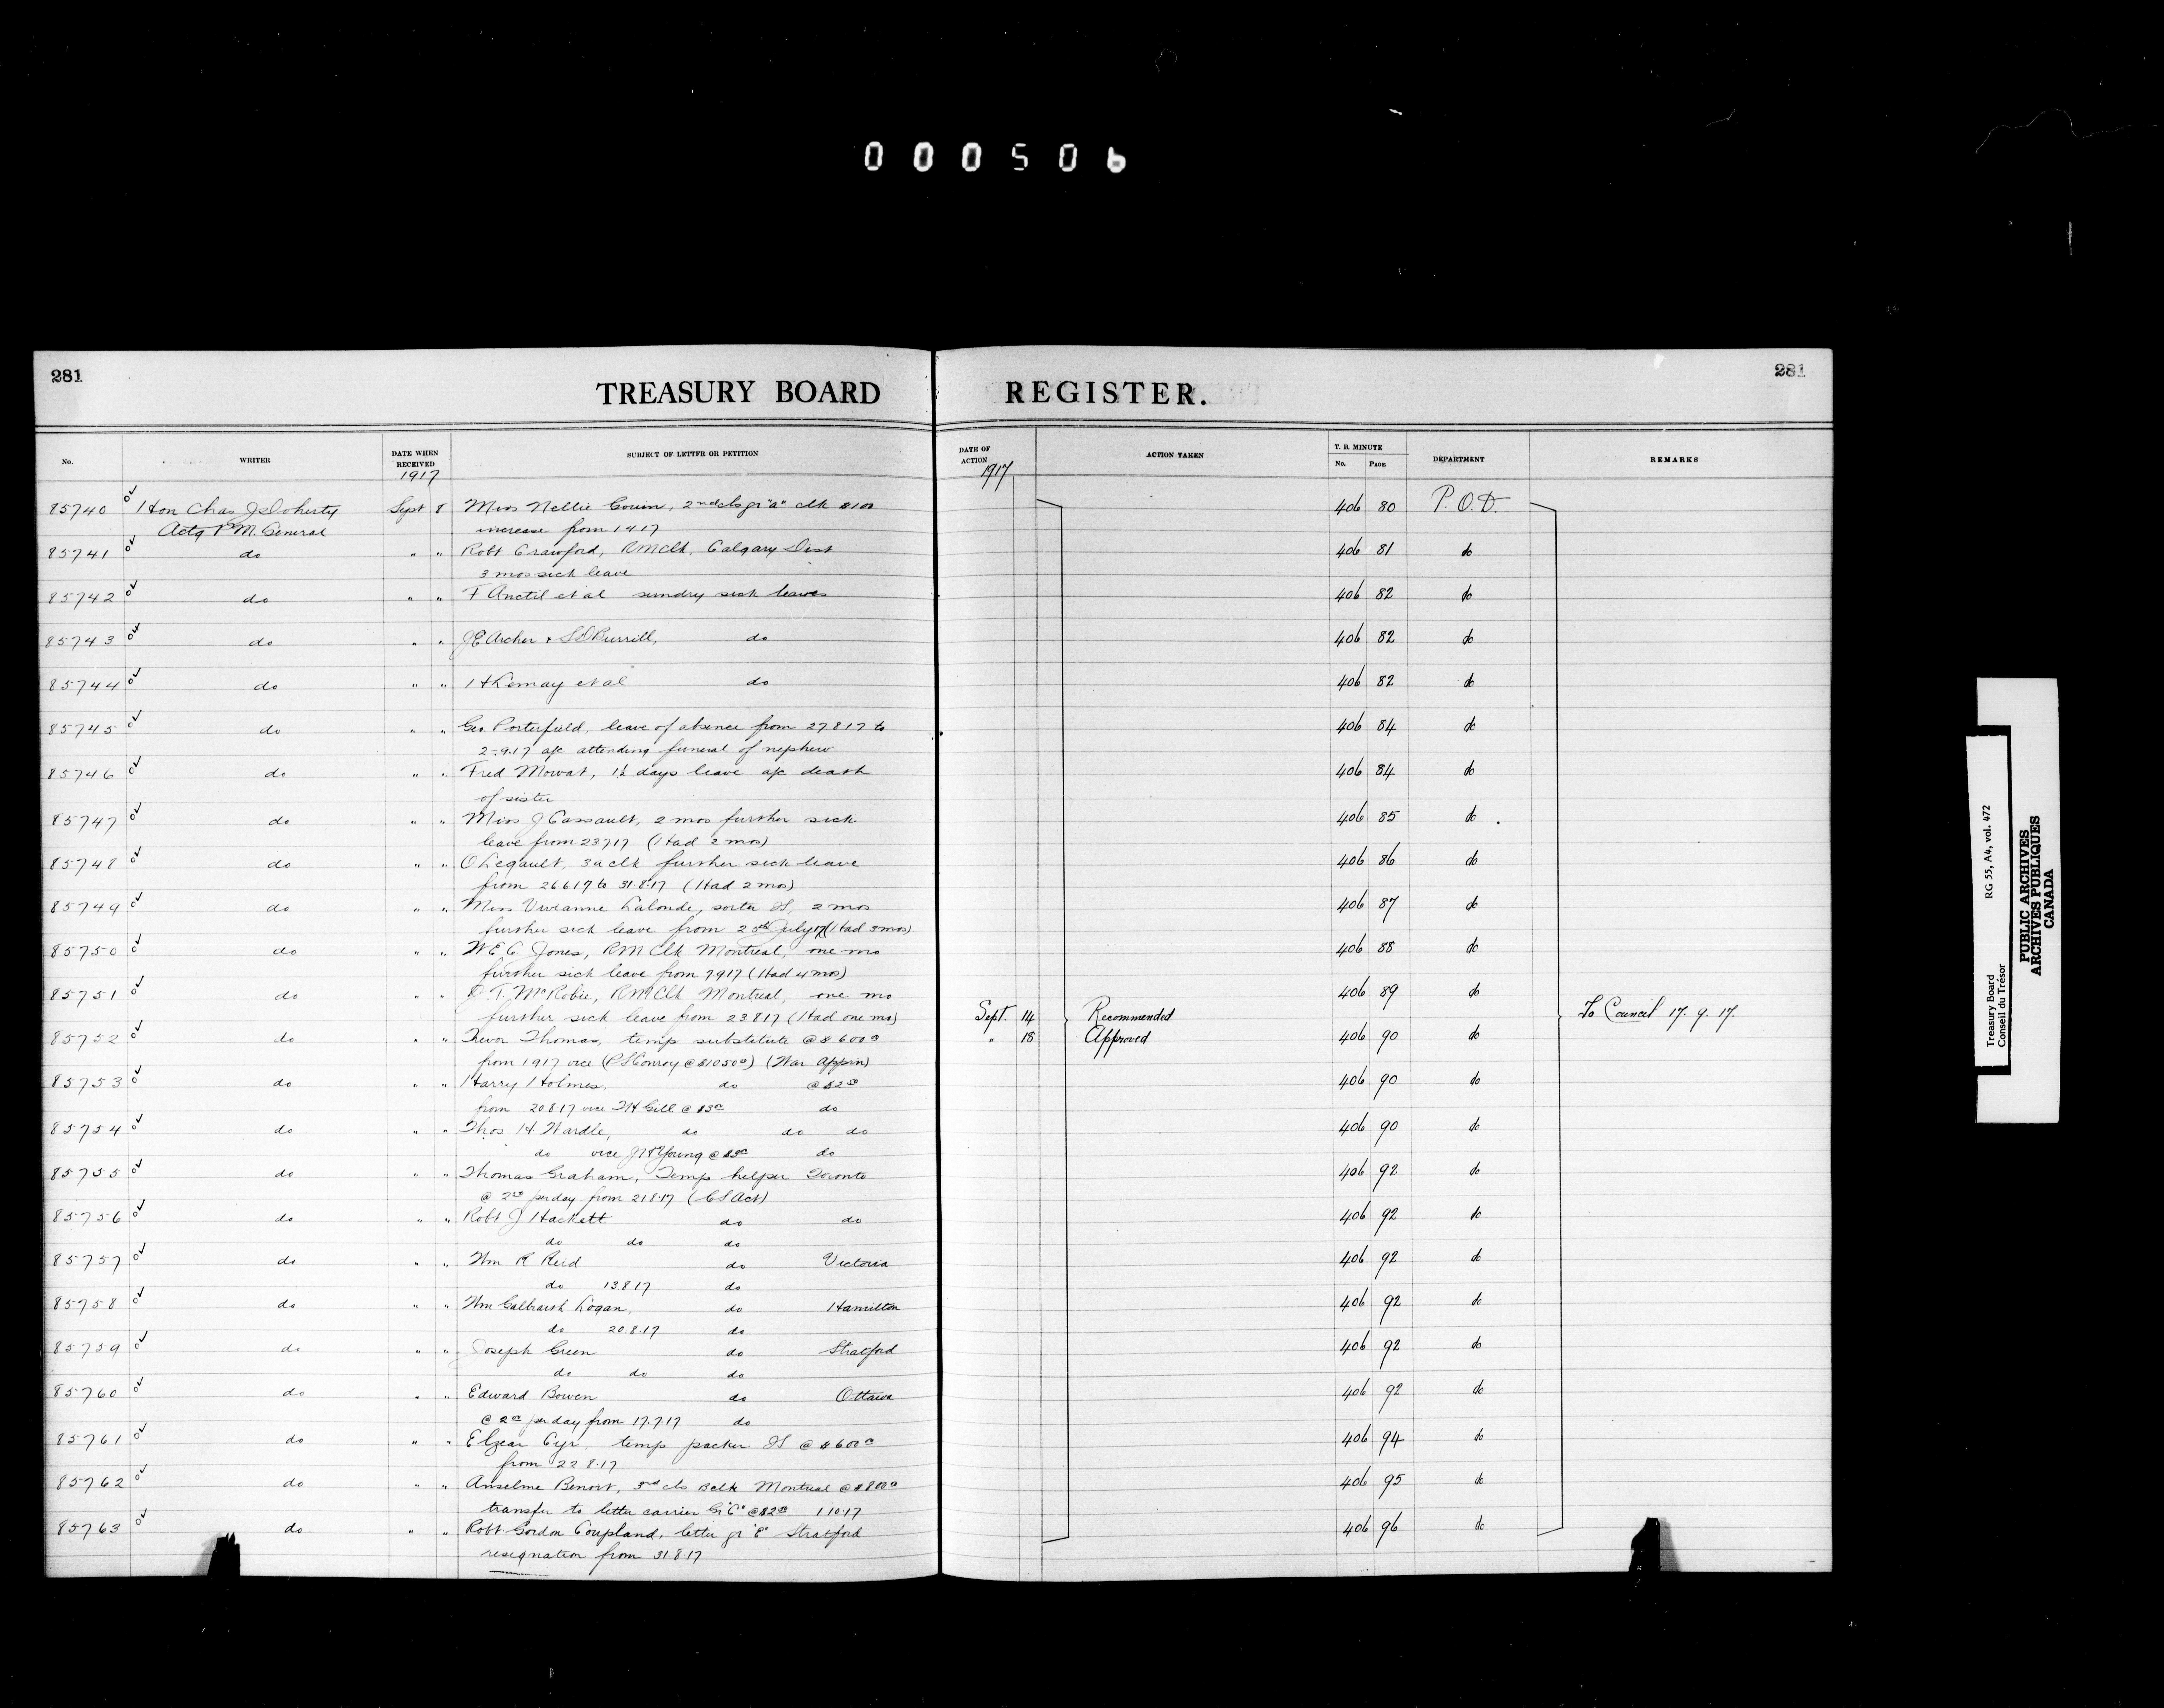 000506
281
281
TREASURY BOARD REGISTER.
No. WRITER DATE WHEN RECEIVED SUBJECT OF LETTER OR PETITION DATE OF ACTION ACTION TAKEN T. B. MINUTE No. PAGE DEPARTMENT REMARKS
1917 1917
85740 Hon Chas J Doherty Sept 8 Miss Nellie 2nd cls gr "a" clk $100 406 80 P.O.D.
Actg P.M. General increase from 1.4.17
85741 do " " Robt Crawford, RMClk, Calgary Dist 406 81 do
3 mos sick leave
85742 do " " F Anctil et al sundry sick leaves 406 82 do
85743 do " " JE Archer + Burrill, do 406 82 do
85744 do " " H Lemay et al do 406 82 do
85745 do " " Geo. Porterfield, leave of absence from 27.8.17 to 406 84 do
2.9.17 a/c attending funeral of nephew
85746 do " " Fred Mowat, 1½ days leave a/c death 406 84 do
of sister
85747 do " " Miss J Cassault, 2 mos further sick 406 85 do
leave from 23717 (Had 2 mos)
85748 do " " O Legault, 3a clk further sick leave 406 86 do
from 26617 to 31.8.17 (Had 2 mos)
85749 do " " Miss Vivianne Lalonde, sorter 2 mos 406 87 do
further sick leave from 20th July 17 (Had 3 mos)
85750 do " " W.E.C. Jones, RM Clk Montreal, one mo 406 88 do
further sick leave from 7917 (Had 4 mos)
85751 do " " J.T. McRobie, RM Clk Montreal, one mo 406 89 do
further sick leave from 23.8.17 (Had one mo) Sept. 14 Recommended To Council 17.9.17.
85752 do " " Trevor Thomas, temp substitute @ $600 " 18 Approved 406 90 do
from 1917 vice (Conroy @ $1050) (War Apprn)
85753 do " " Harry Holmes, do @ $2 50 406 90 do
from 20.8.17 vice Gill @ $3 00 do
85754 do " " Thos H. Wardle, do do do 406 90 do
do vice Young @ $3 00 do
85755 do " " Thomas Graham, Temp helper Toronto 406 92 do
@ 2 50 per day from 21.8.17 (C S Act)
85756 do " " Robt J Hackett do do 406 92 do
do do do
85757 do " " Wm R Reid do Victoria 406 92 do
do 13.8.17 do
85758 do " " Wm Galbraith Logan, do Hamilton 406 92 do
do 20.8.17 do
85759 do " " Joseph Green do Stratford 406 92 do
do do do
85760 do " " Edward Bowen do Ottawa 406 92 do
@ 2 00 per day from 17.7.17 do
85761 do " " Elzear Cyr, temp packer @ $600 406 94 do
from 22.8.17
85762 do " " Anselme Benoit, 3rd cls Montreal @ $800 406 95 do
transfer to letter carrier Gr "C" @ $2 50 1.10.17
85763 do " " Robt Gordon Coupland, letter gr "E" Stratford 406 96 do
resignation from 31.8.17
Treasury Board RG 55, A4, vol. 472
Conseil du Trésor
PUBLIC ARCHIVES
ARCHIVES PUBLIQUES
CANADA